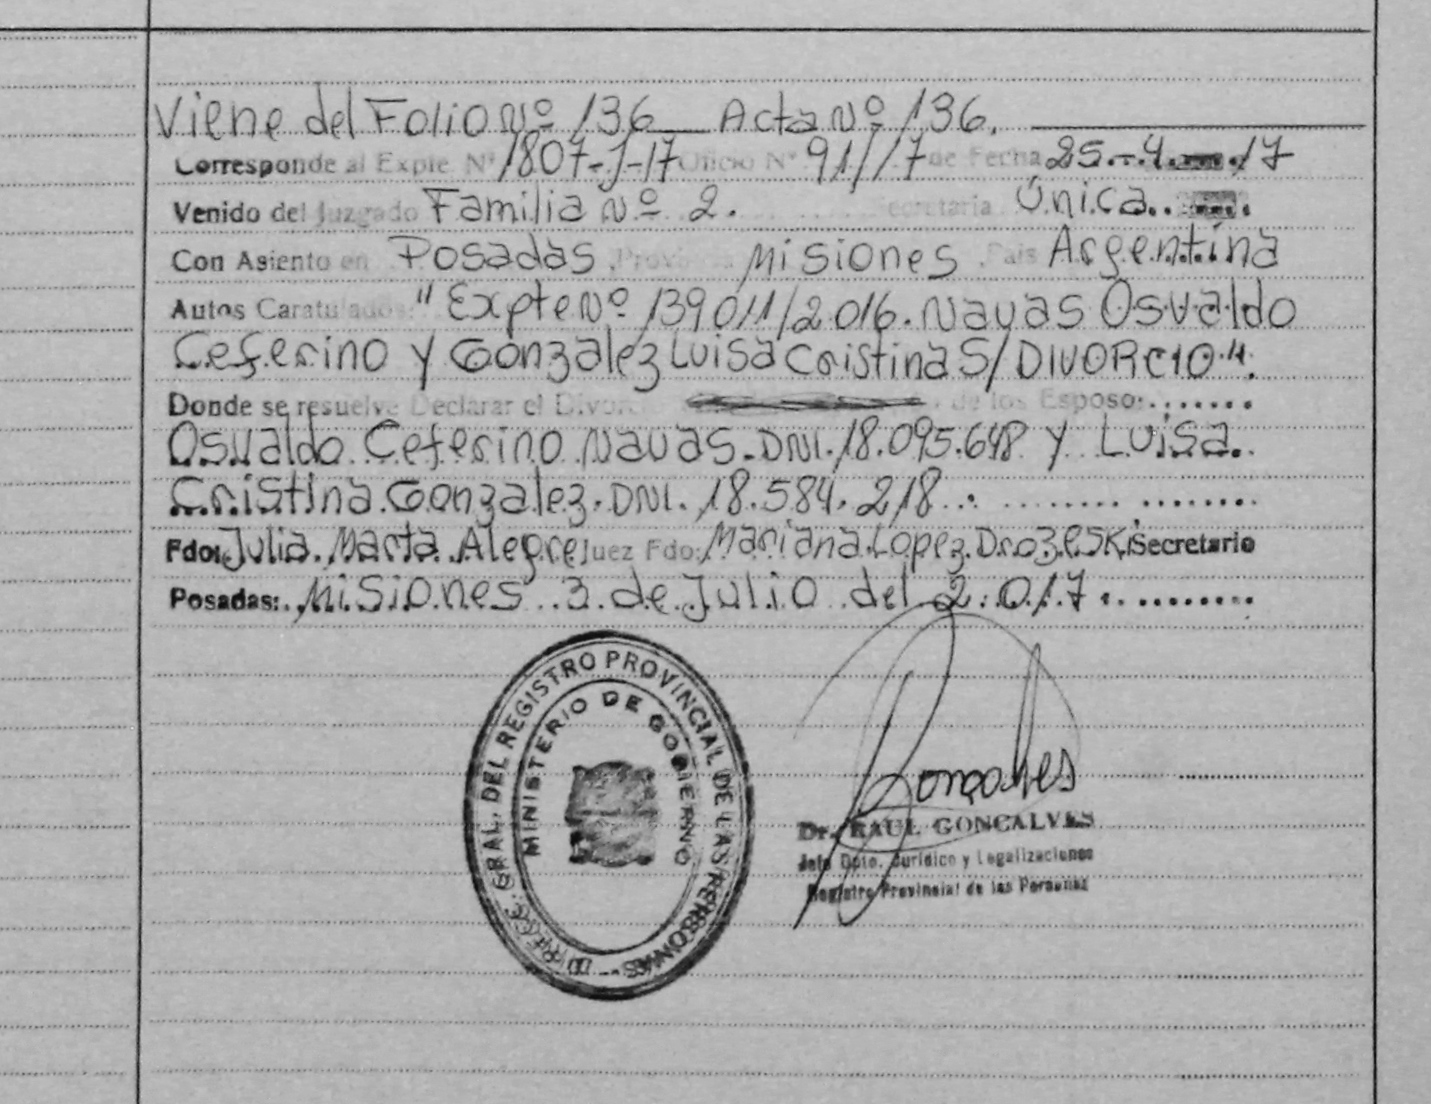 Viene del Folio Nº 136 Acta Nº 136.
Corresponde al Expte Nº 1807-J-17 Oficio Nº 91/17 de Fecha 25-4-17
Venido del Juzgado Familia Nº 2. Secretaria Única
Con Asiento en Posadas Provincia Misiones Pais Argentina
Autos Caratulados: "Expte Nº 139011/2016. Navas Osvaldo
Ceferino y Gonzalez Luisa Cristina S/DIVORCIO".
Donde se resuelve Declarar el Divorc de los Esposo:
Osvaldo Ceferino Navas. DNI. 18.095.648 y Luisa
Cristina Gonzalez. DNI. 18.584.218.
Fdo: Julia Marta Alegre Juez Fdo: Mariana Lopez Drozeski Secretario
Posadas: Misiones 3 de Julio del 2.017.
DIRECC. GRAL. DEL REGISTRO PROVINCIAL DE LAS PERSONAS
MINISTERIO DE GOBIERNO
Gonçalves
Dr. RAUL GONCALVES
Jefe Dpto. Jurídico y Legalizaciones
Registro Provincial de las Personas